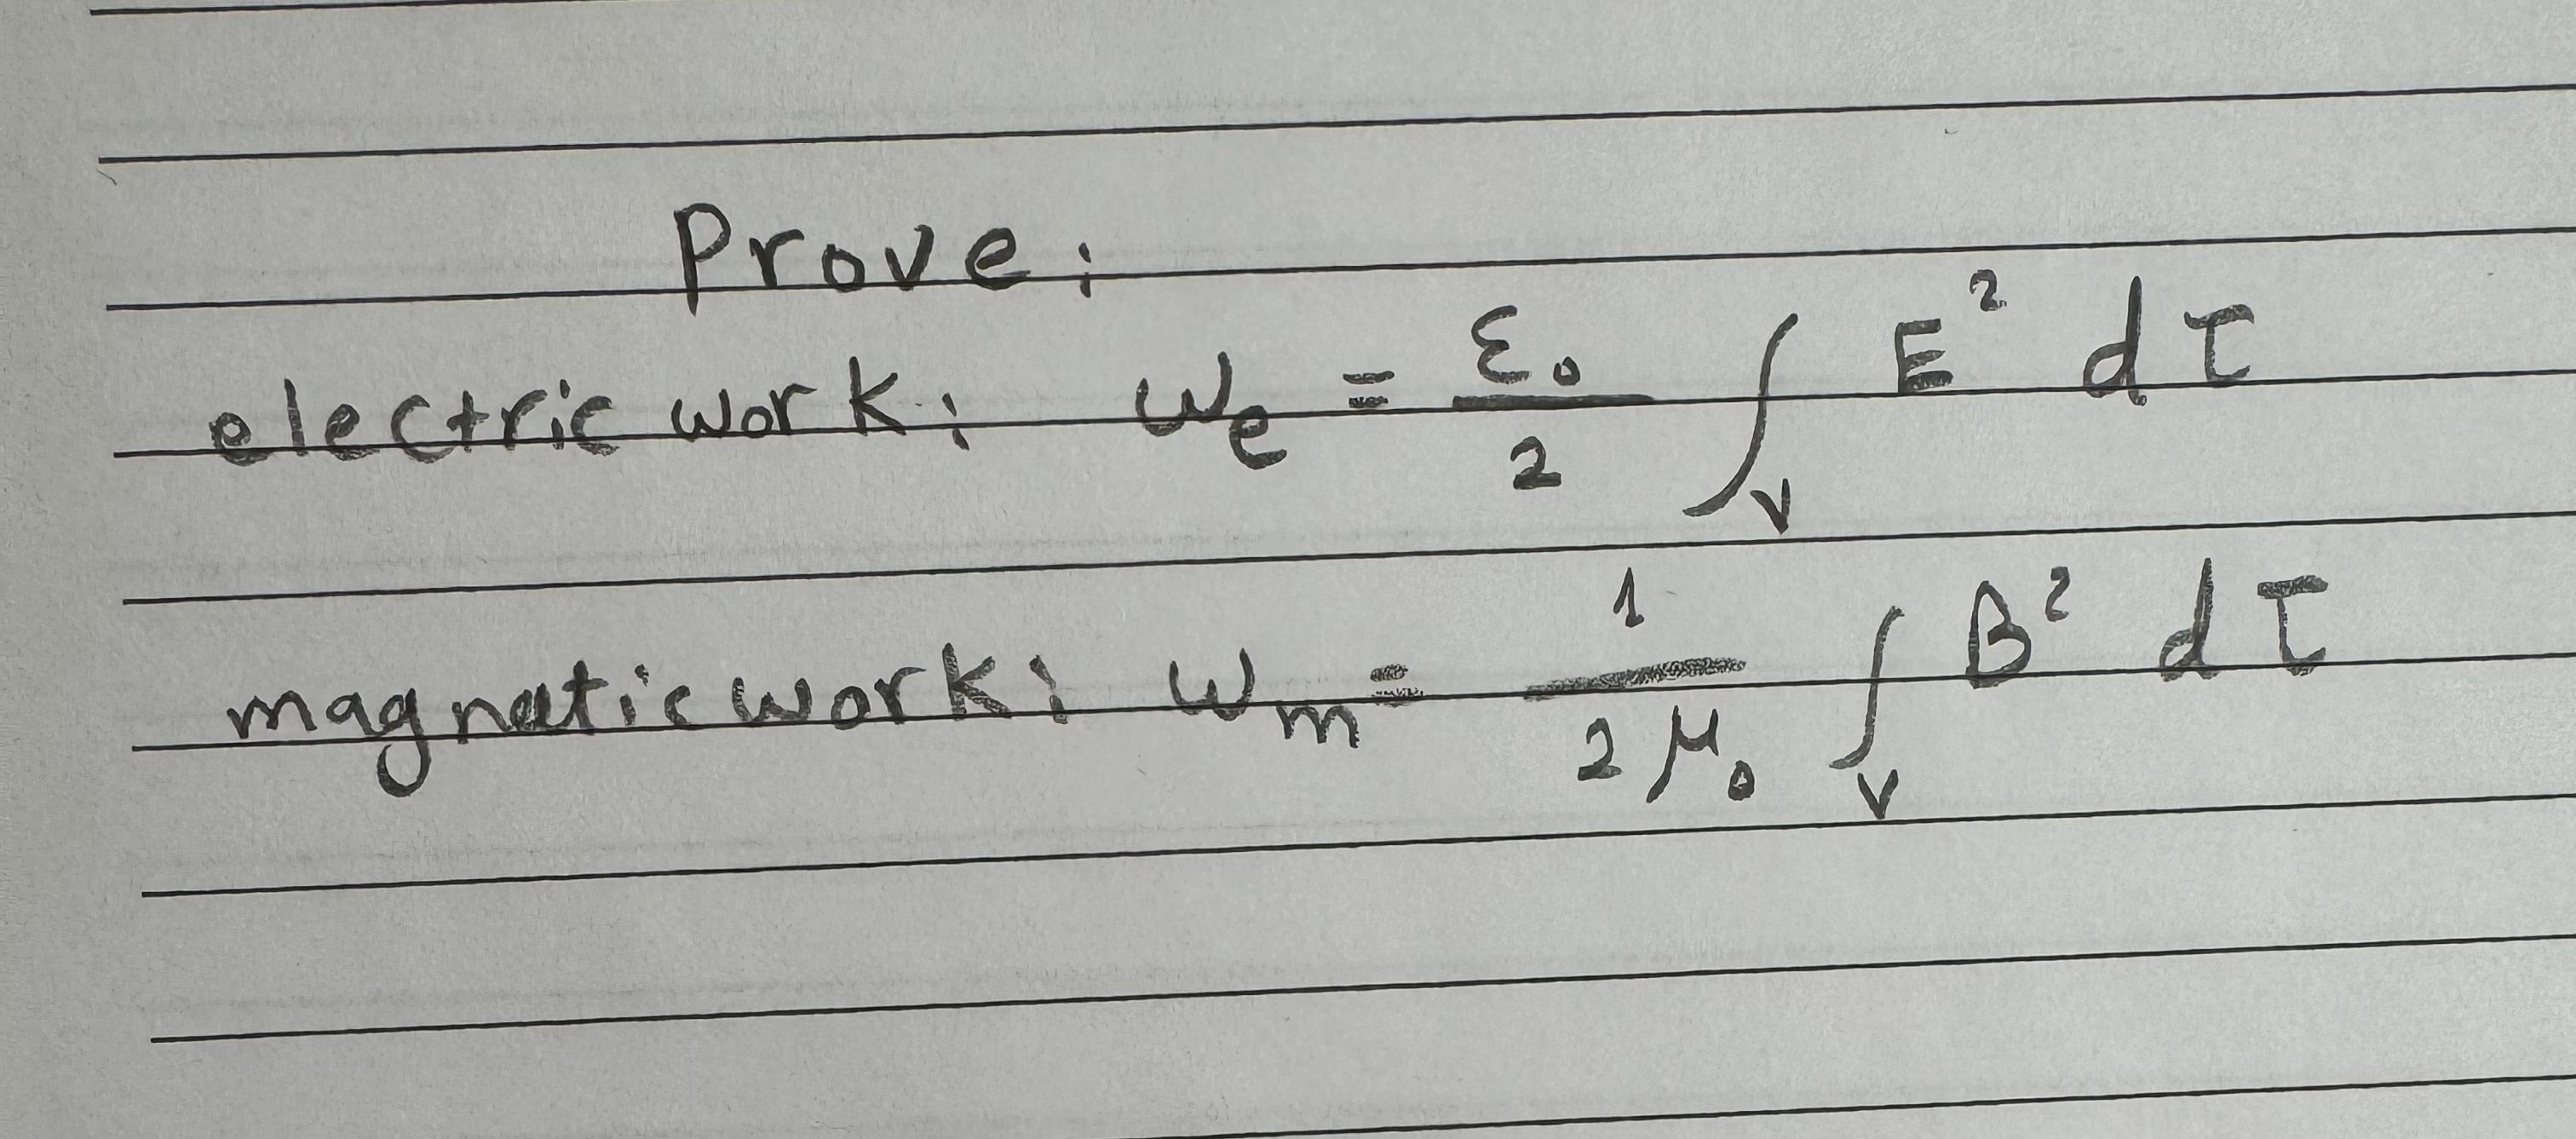 Prove:
electric work: We = ε₀/2 ∫v E² dτ
magnetic work: Wm = 1/2μ₀ ∫v B² dτ